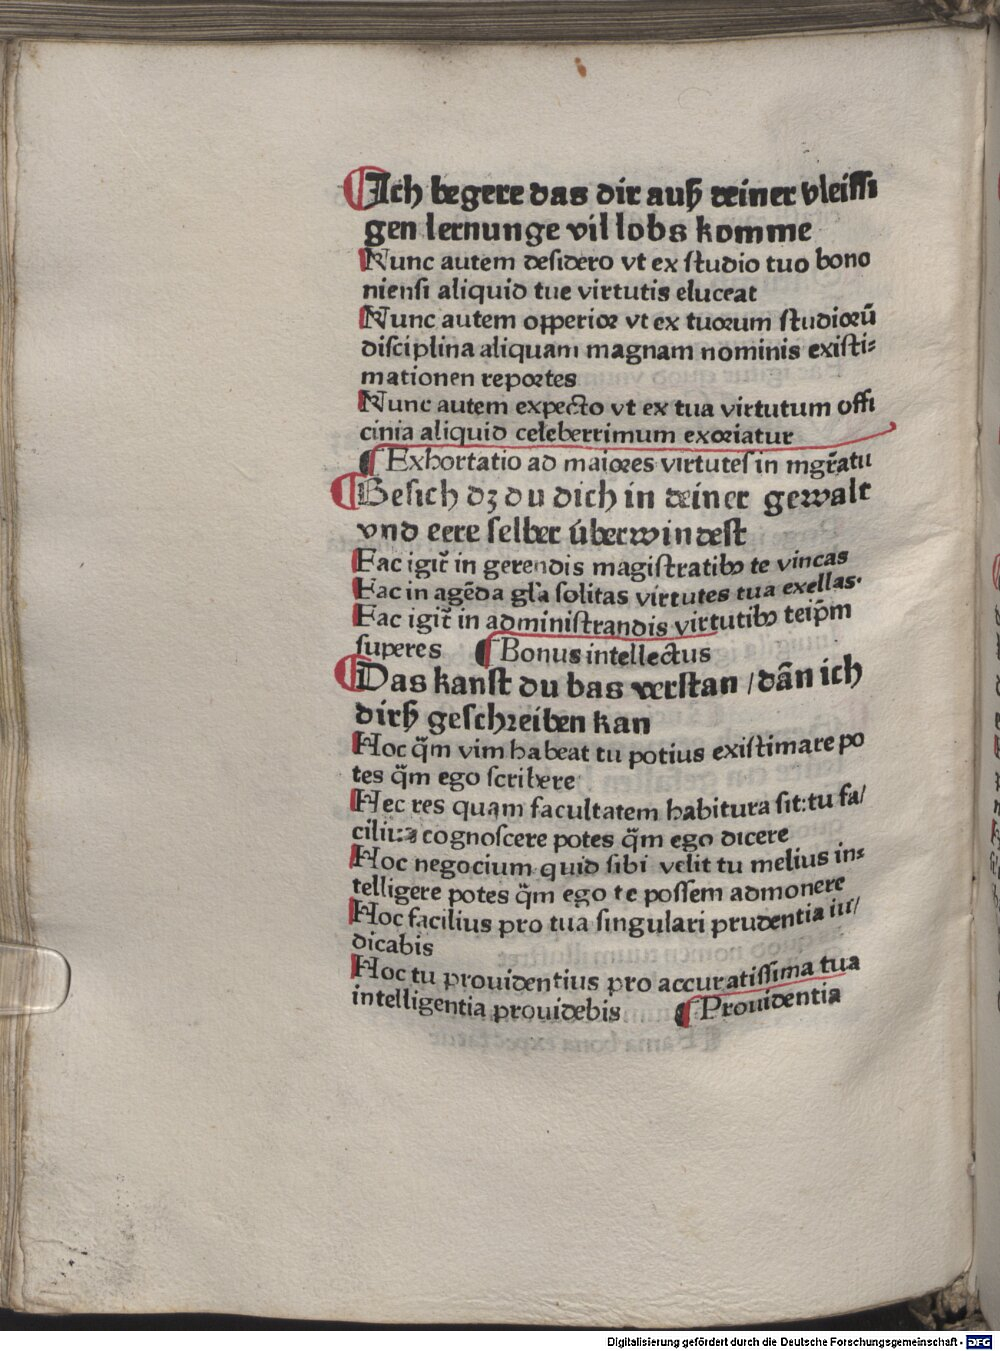 Ich begere das dir auß deiner vleissi
gen lernunge vil lobs komme
Nunc autem desidero vt ex studio tuo bono
niensi aliquid tue virtutis eluceat
Nunc autem opperior vt ex tuorum studiorū
disciplina aliquam magnam nominis existi⸗
mationen reportes
Nunc autem expecto vt ex tua virtutum offi
cinia aliquid celeberrimum exoriatur
¶ Exhortatio ad maiores virtutes in mgr̄atu
¶ Besich dz du dich in deiner gewalt
vnd eere selber überwindest
Fac igit̄ in gerendis magistratibꝯ te vincas
Fac in agēda gl̄a solitas virtutes tua exellas.
Fac igit̄ in administrandis virtutibꝯ teip̄m
superes ¶ Bonus intellectus
¶ Das kanst du bas verstan / dān ich
dirß geschreiben kan
Hoc q̄m vim habeat tu potius existimare po
tes q̄m ego scribere
Hec res quam facultatem habitura sit: tu fa/
cilius cognoscere potes q̄m ego dicere
Hoc negocium quid sibi velit tu melius in⸗
telligere potes q̄m ego te possem admonere
Hoc facilius pro tua singulari prudentia iu/
dicabis
Hoc tu prouidentius pro accuratissima tua
intelligentia prouidebis ¶ Prouidentia
Digitalisierung gefördert durch die Deutsche Forschungsgemeinschaft - DFG